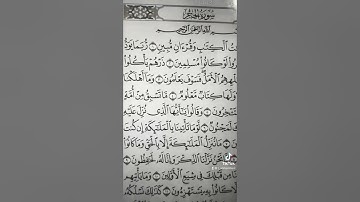 سُورَةُ الحِجْرِ
بِسْمِ اللَّهِ الرَّحْمَٰنِ الرَّحِيمِ
تُ الْكِتَابِ وَقُرْءَانٍ مُّبِينٍ ۝ رُّبَمَا يَوَدُّ
لَوْ كَانُوا مُسْلِمِينَ ۝ ذَرْهُمْ يَأْكُلُوا
لْهِهِمُ الْأَمَلُ فَسَوْفَ يَعْلَمُونَ ۝ وَمَا أَهْلَكْنَا
وَلَهَا كِتَابٌ مَّعْلُومٌ ۝ مَّا تَسْبِقُ مِنْ أُمَّةٍ
تَـْٔخِرُونَ ۝ وَقَالُوا يَٰٓأَيُّهَا الَّذِي نُزِّلَ عَلَيْهِ
لَمَجْنُونٌ ۝ لَّوْ مَا تَأْتِينَا بِالْمَلَٰٓئِكَةِ إِن كُنتَ
مَا نُنَزِّلُ الْمَلَٰٓئِكَةَ إِلَّا بِالْحَقِّ وَمَا كَانُوا
نَحْنُ نَزَّلْنَا الذِّكْرَ وَإِنَّا لَهُ لَحَٰفِظُونَ
نَا مِن قَبْلِكَ فِي شِيَعِ الْأَوَّلِينَ ۝ وَمَا يَأْتِيهِم
نُوا بِهِ يَسْتَهْزِءُونَ ۝ كَذَٰلِكَ نَسْلُكُهُ
TikTok